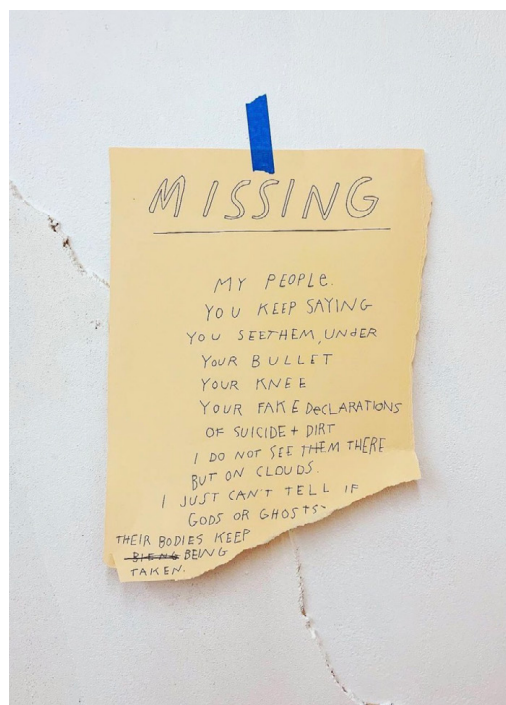 MISSING
MY PEOPLe.
YOU KEEP SAYING
YOU SEE THEM, UNdER
YOUR BULLET
YOUR KNEE
YOUR FAKE DeCLARATIONS
OF SUICIDE + DIRT
I DO NOT SEE THEM THERE
BUT ON CLOUDS.
I JUST CAN'T TELL IF
GODS OR GHOSTS-
THEIR BODIES KEEP
BIENG BEING
TAKEN.